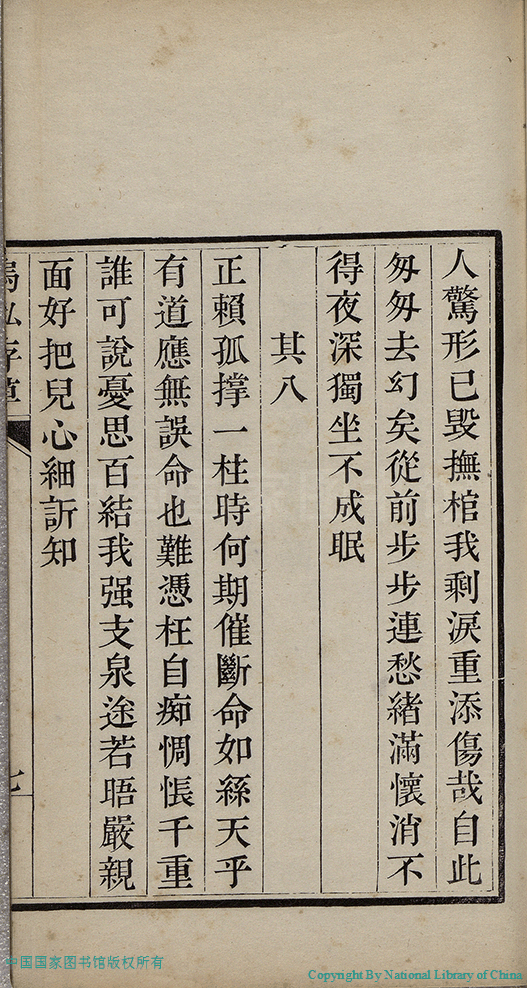 人驚形已毀撫棺我剩淚重添傷哉自此
匆匆去幻矣從前步步連愁緒滿懷消不
得夜深獨坐不成眠
其八
正賴孤撐一柱時何期催斷命如絲天乎
有道應無誤命也難憑枉自痴惆悵千重
誰可說憂思百結我强支泉途若晤嚴親
面好把兒心細訢知
七
中国国家图书馆版权所有
Copyright By National Library of China